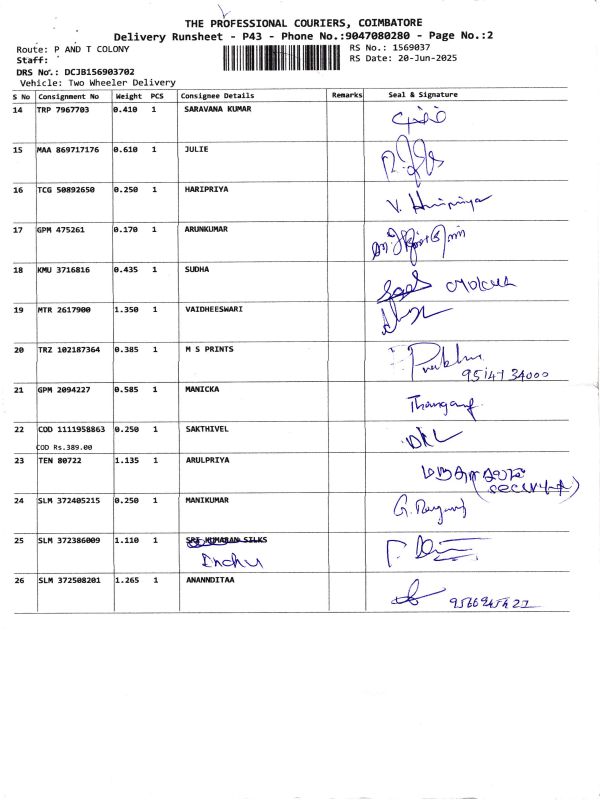 THE PROFESSIONAL COURIERS, COIMBATORE
Delivery Runsheet - P43 - Phone No.:9047080280 - Page No.:2
Route: P AND T COLONY RS No.: 1569037
Staff: RS Date: 20-Jun-2025
DRS No.: DCJB156903702
Vehicle: Two Wheeler Delivery
S No Consignment No Weight PCS Consignee Details Remarks Seal & Signature
14 TRP 7967703 0.410 1 SARAVANA KUMAR
15 MAA 869717176 0.610 1 JULIE
16 TCG 50892650 0.250 1 HARIPRIYA V. Haripriya
17 GPM 475261 0.170 1 ARUNKUMAR
18 KMU 3716816 0.435 1 SUDHA
19 MTR 2617900 1.350 1 VAIDHEESWARI
20 TRZ 102187364 0.385 1 M S PRINTS Prabhu
9514734000
21 GPM 2094227 0.585 1 MANICKA
22 COD 1111958863 0.250 1 SAKTHIVEL
COD Rs.389.00
23 TEN 80722 1.135 1 ARULPRIYA
(security)
24 SLM 372405215 0.250 1 MANIKUMAR
25 SLM 372386009 1.110 1 SRI KUMARAN SILKS
Indhu
26 SLM 372508201 1.265 1 ANANNDITAA